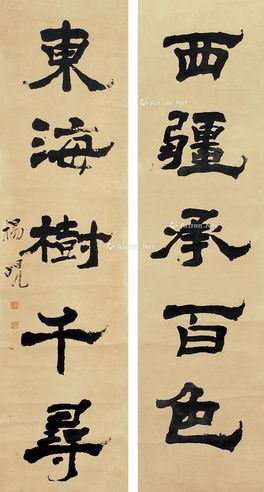 西疆承百色
東海樹千尋
楊晛
Artron.Net
Artron.Net